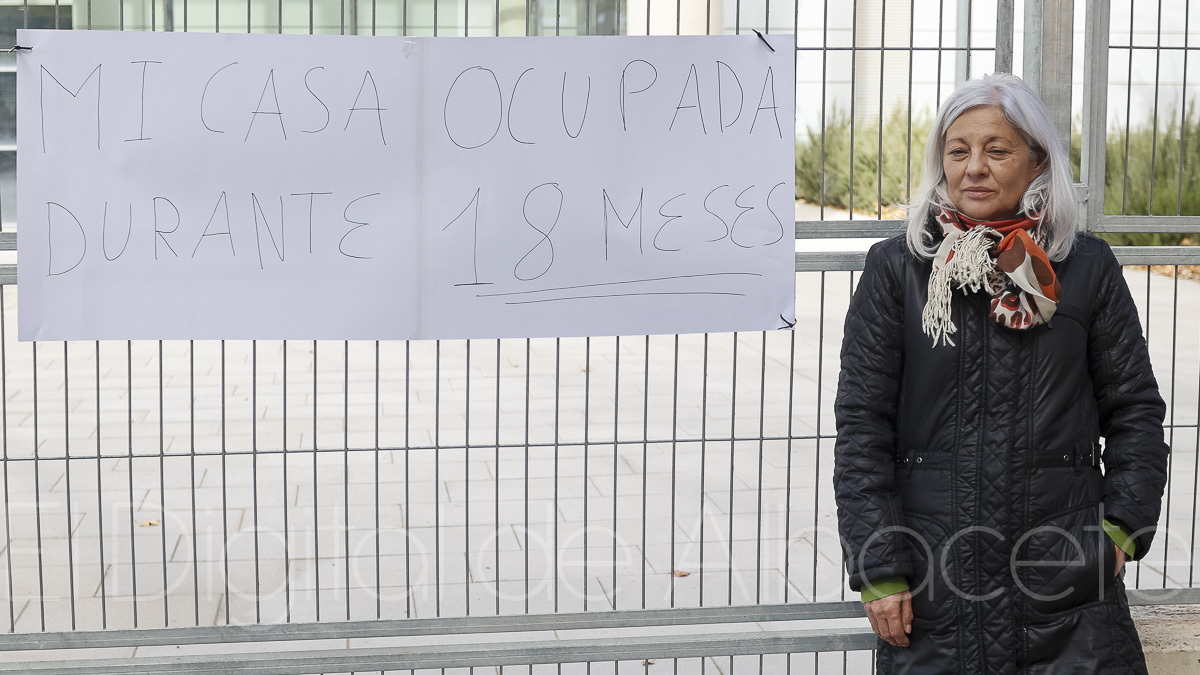 MI CASA OCUPADA
DURANTE 18 MESES
El Digital de Albacete